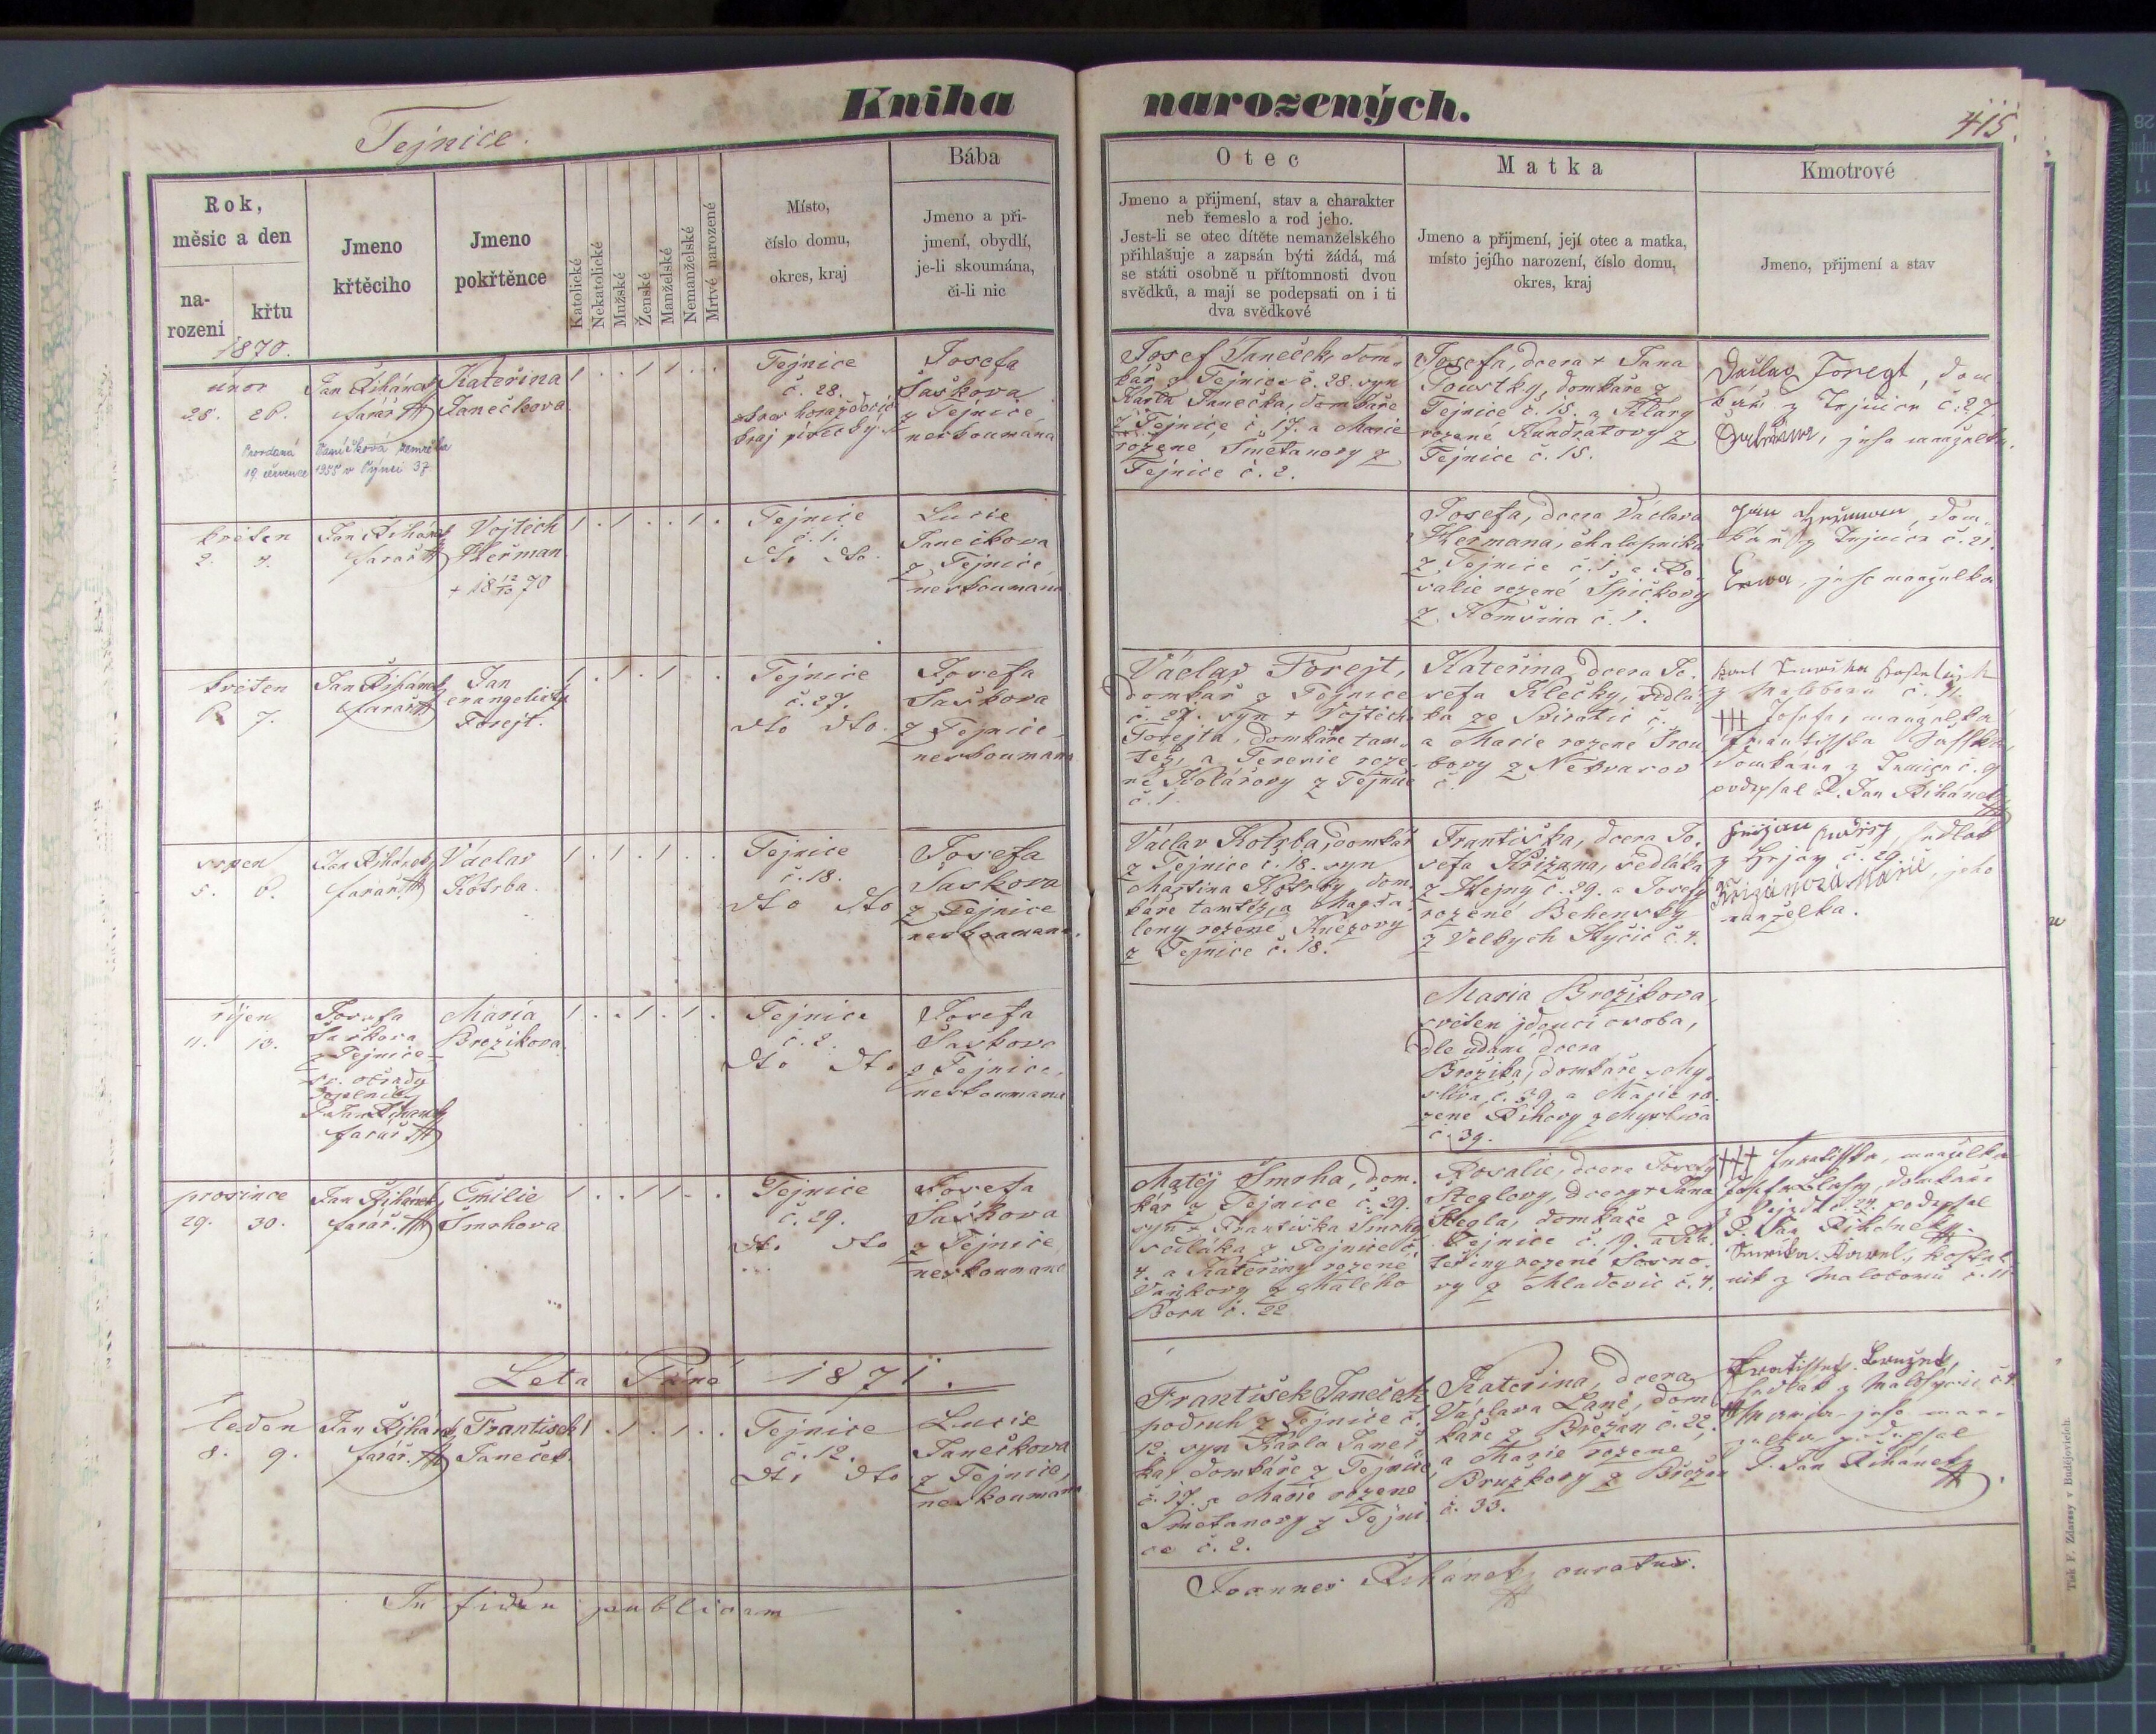 Kniha narozených.
Tejnice.
415.
Rok,
měsíc a den
na-
rozeni
křtu
1870.
Jmeno
křtěcího
Jmeno
pokřtěnce
Katolické
Nekatolické
Mužské
Ženské
Manželské
Nemanželské
Mrtvé narozené
Místo,
číslo domu,
okres, kraj
Bába
Jmeno a při-
jmení, obydlí,
je-li skoumána,
či-li nic
Otec
Jmeno a přijmení, stav a charakter
neb řemeslo a rod jeho.
Jest-li se otec dítěte nemanželského
přihlašuje a zapsán býti žádá, má
se státi osobně u přítomnosti dvou
svědků, a mají se podepsati on i ti
dva svědkové
Matka
Jmeno a přijmení, její otec a matka,
místo jejího narození, číslo domu,
okres, kraj
Kmotrové
Jmeno, přijmení a stav
únor
25. 26.
Jan Řihánek
farář
Kateřina
Janečkova
1 . . 1 1 . .
Tejnice
č. 28.
okres horažďovic
kraj písecký
Josefa
Šaškova
z Tejnice
neskoumana
Josef Janeček, dom-
kář z Tejnice č. 28. syn
Karla Janečka, domkáře
z Tejnice č. 17. a Marie
rozené Smetanovy z
Tejnice č. 2.
Josefa, dcera + Jana
Toustky, domkáře z
Tejnice č. 15. a Klary
rozené Kandrátovy z
Tejnice č. 15.
Václav Forejt, dom
kář z Tejnice č. 27.
jeho manželka.
Provdaná zemřela
19. července 1955 v 37
květen
2. 7.
Jan Řihánek
farář
Vojtěch
Heřman
+ 18 12/10 70
1 . 1 . . 1 .
Tejnice
č. 1.
dto dto
Lucie
Janečkova
z Tejnice
neskoumana
Josefa, dcera Václava
Heřmana, chalupníka
z Tejnice č. 1. a Ro-
salie rozené Špičkovy
z Komšina č. 1.
Jan Heřman, dom-
kář z Tejnice č. 21.
Ewa, jeho manželka
květen
6. 7.
Jan Řihánek
farář
Jan
evangelista
Forejt.
1 . 1 . 1 . .
Tejnice
č. 27.
dto dto.
Josefa
Šaškova
z Tejnice
neskoumana
Václav Forejt,
domkář z Tejnice
č. 27. syn + Vojtěcha
Forejta, domkáře tam-
též, a Terezie roze-
né Kolářovy z Tejnice
č. 1.
Kateřina, dcera Jo-
sefa Klečky, sedlá-
ka ze Sviratic č.
a Marie rozené Trou
bovy z Nekvasov
č.
z Maloboru č. 11.
+++ Josefa, manželka
Františka Šaška,
domkáře z Tejnice č. 9
podepsal P. Jan Řihánek
srpen
5. 6.
Jan Řihánek
farář
Václav
Kotrba.
1 . 1 . 1 . .
Tejnice
č. 18.
dto dto
Josefa
Šaškova
z Tejnice
neskoumana.
Václav Kotrba, domkář
z Tejnice č. 18. syn
Martina Kotrby, dom-
káře tamtéž, a Magda-
leny rozené Knězovy
z Tejnice č. 18.
Františka, dcera Jo-
sefa Křižana, sedláka
z Hejny č. 29. a Josefy
rozené Behensky
z Velkych Hyčic č. 4.
sedlák
z Hejny č. 29
Křižanova Marie, jeho
manželka.
říjen
11. 13.
Josefa
Šaškova
z Tejnice
sv. obřady
doplnil
P. Jan Řihánek
farář
Maria
Brožikova.
1 . . 1 . 1 .
Tejnice
č. 2.
dto dto
Josefa
Šaškova
z Tejnice,
neskoumana
Maria Brožikova,
světem jdoucí osoba,
dle udání dcera
Brožika, domkáře z My-
sliva č. 39. a Marie ro-
zené Řihovy z Mysliva
č. 39.
prosince
29. 30.
Jan Řihánek
farář.
Emilie
Šmrhova
1 . . 1 1 . .
Tejnice
č. 29.
dto dto
Josefa
Šaškova
z Tejnice
neskoumana
Matěj Šmrha, dom-
kář z Tejnice č. 29.
syn + Františka Šmrhy
sedláka z Tejnice č.
4. a Kateřiny rozené
Vaňkovy z Maleho
Boru č. 22
Rosalie, dcera Josefy
Šteglovy, dcery + Jana
Štegla, domkáře z
Tejnice č. 19. a Ka-
teřiny rozené Sosno-
vy z Mladovic č. 4.
+++ Františka, manželka
Josefa domkáře
č. 24. podepsal
P. Jan Řihánek.
Smrčka Karel, košťál
nik z Maloboru č. 11.
Leta Páně 1871.
leden
8. 9.
Jan Řihánek
farář.
František
Janeček.
1 . 1 . 1 . .
Tejnice
č. 12.
dto dto
Lucie
Janečkova
z Tejnice,
neskoumana
František Janeček
podruh z Tejnice č.
12. syn Karla Janeč-
ka, domkáře z Tejnice
č. 17. a Marie rozene
Smetanovy z Tejni
ce č. 2.
Kateřina, dcera
Václava Lané, dom
káře z Břežan č. 22,
a Marie rozené
Bruzkovy z Břežan
č. 33.
sedlák z
Maria jeho man-
želka, podepsal
P. Jan Řihánek
In fidem publicam
Joannes Řihánek, curatus.
Tisk F. Zdarssy v Budějovicích.